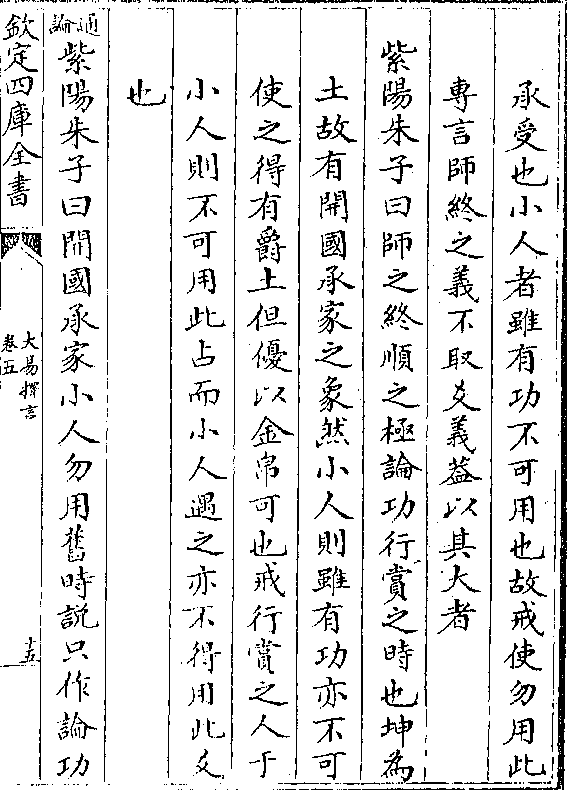 承受也小人者雖有功不可用也故戒使勿用此
專言師終之義不取爻義葢以其大者
紫陽朱子曰師之終順之極論功行賞之時也坤為
土故有開國承家之象然小人則雖有功亦不可
使之得有爵土但優以金帛可也戒行賞之人于
小人則不可用此占而小人遇之亦不得用此爻
也
通論紫陽朱子曰開國承家小人勿用舊時説只作論功
欽定四庫全書
大易擇言
卷五
十五